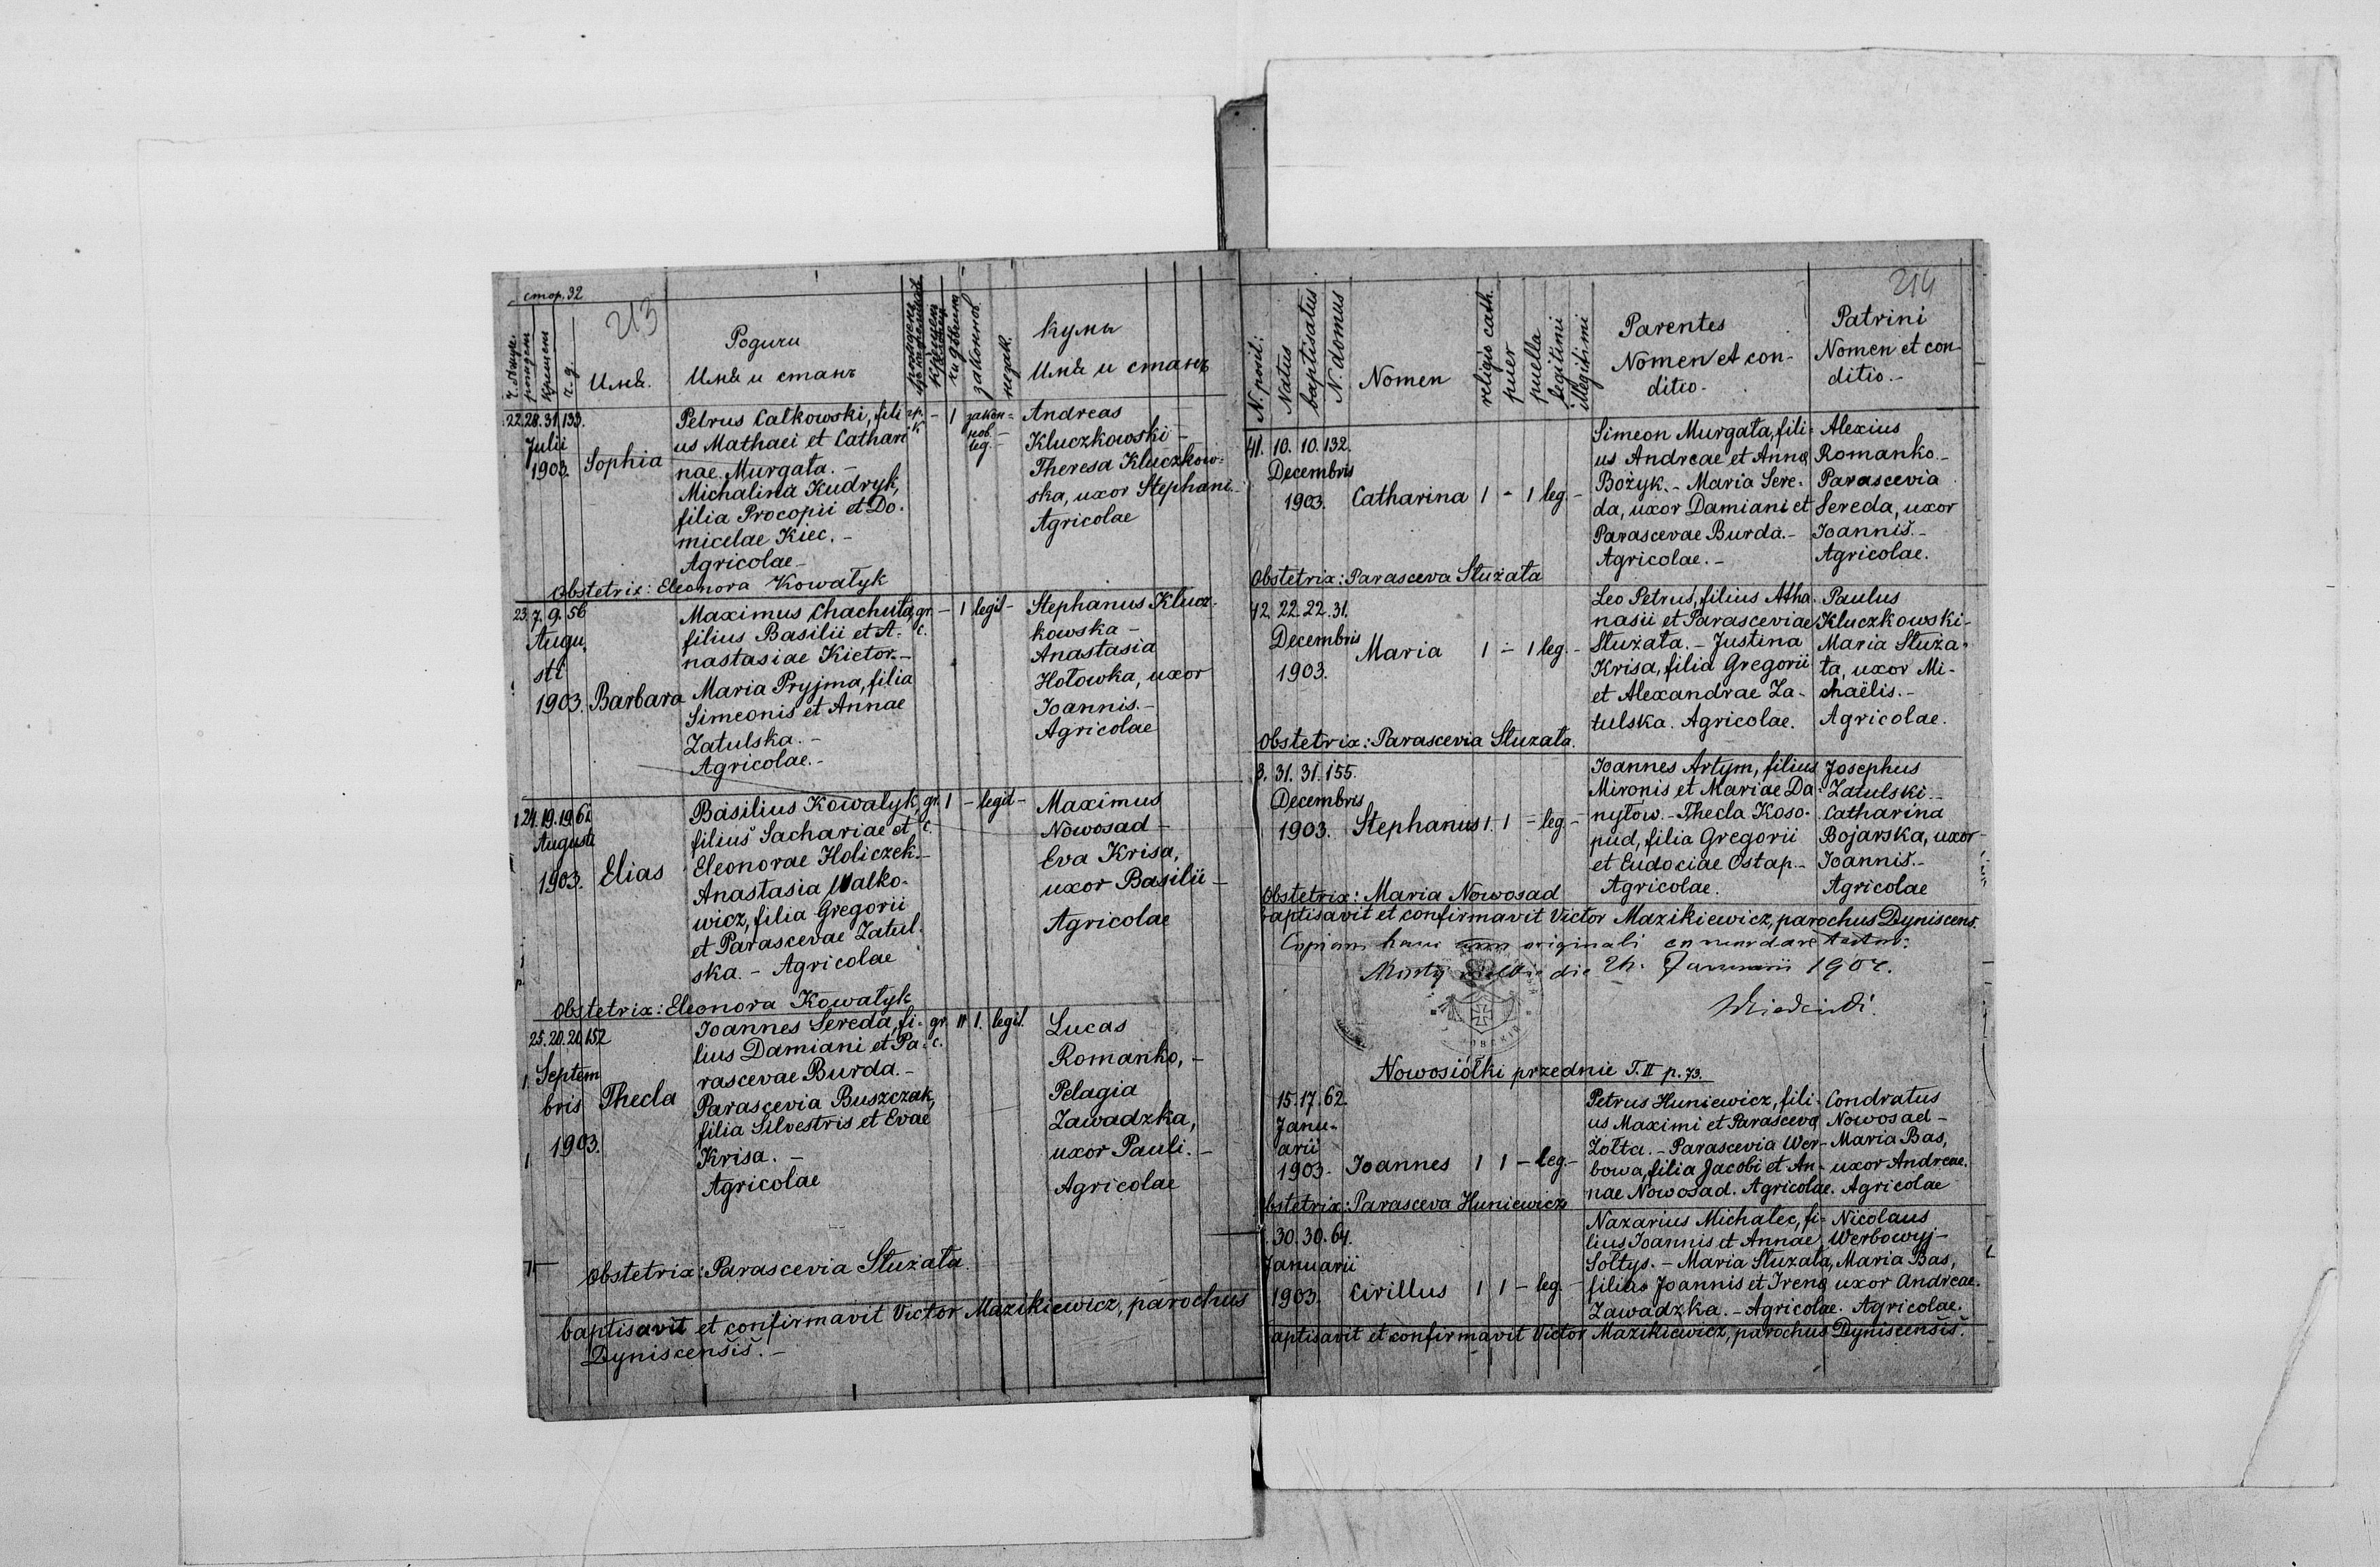 стор. 32
213
Родичи
Имя и станъ
Кумы
Имя и станъ
Имя.
законнов.
22. 28. 31. 133.
Julii
1903.
Sophia
Petrus Całkowski, fili
us Mathaei et Cathari
nae Murgata. –
Michalina Kudryk,
filia Procopii et Do.
micelae Kiec. –
Agricolae –
гр. к – 1 закон=
нов. –
leg. –
Andreas
Kluczkowski –
Theresa Kluczkow=
ska, uxor Stephani. –
Agricolae
Obstetrix: Eleonora Kowałyk
23. 7. 9. 56
Augu.
sti
1903.
Barbara
Maximus Chachuta,
filius Basilii et A-
nastasiae Kictor. –
Maria Pryjma, filia
Simeonis et Annae
Zatulska. –
Agricolae. –
gr. c. – 1 legit –
Stephanus Klucz-
kowska –
Anastasia
Hołowka, uxor
Joannis. –
Agricolae
24. 19. 19. 62
Augusti
1903.
Elias
Basilius Kowałyk
filius Sachariae et
Eleonorae Holiczek. –
Anastasia Walko-
wicz, filia Gregorii
et Parascevae Zatul.
ska. – Agricolae
gr. c. 1 – legit –
Maximus
Nowosad –
Eva Krisa,
uxor Basilii –
Agricolae
Obstetrix: Eleonora Kowałyk
25. 20. 20. 152
Septem
bris
1903.
Thecla
Joannes Sereda, fi-
lius Damiani et Pa-
rascevae Burda. –
Parascevia Buszczak,
filia Silvestris et Evae
Krisa. –
Agricolae
gr. c. 1. legit.
Lucas
Romanko, –
Pelagia
Zawadzka,
uxor Pauli. –
Agricolae
Obstetrix: Parascevia Słuzata.
baptisavit et confirmavit Victor Mazikiewicz, parochus
Dyniscensis. –
214
N. posit.
Natus
baptisatus
N. domus
Nomen
religio cath.
puer
puella
legitimi
illegitimi
Parentes
Nomen et con-
ditio. –
Patrini
Nomen et con-
ditio. –
41. 10. 10. 132.
Decembris
1903.
Catharina 1 – 1 leg. –
Simeon Murgata, fili=
us Andreae et Annae
Bożyk. – Maria Sere-
da, uxor Damiani et
Parascevae Burda. –
Agricolae. –
Alexius
Romanko. –
Parascevia
Sereda, uxor
Joannis. –
Agricolae.
Obstetrix: Parasceva Słuzata
42. 22. 22. 31.
Decembris
1903.
Maria 1 – 1 leg. –
Leo Petrus, filius Atha-
nasii et Parasceviae
Słuzata. – Justina
Krisa, filia Gregorii
et Alexandrae Za-
tulska. Agricolae.
Paulus
Kluczkowski –
Maria Słuza-
ta, uxor Mi-
chaëlis. –
Agricolae.
Obstetrix: Parascevia Słuzata.
3. 31. 31. 155.
Decembris
1903.
Stephanus 1. 1 – leg. –
Joannes Artym, filius
Mironis et Mariae Da-
nyłow. – Thecla Koso-
pud, filia Gregorii
et Eudociae Ostap. –
Agricolae.
Josephus
Zatulski. –
Catharina
Bojarska, uxor –
Joannis. –
Agricolae
Obstetrix: Maria Nowosad
baptisavit et confirmavit Victor Mazikiewicz, parochus Dyniscens.
Copiam hanc cum originali concordare
die 24. Januarii 1904.
Nowosiółki przednie T. II p. 73.
15. 17. 62.
Janu-
arii
1903.
Joannes 1 1 – leg. –
Petrus Huniewicz, fili-
us Maximi et Parascevae
Zołta. – Parascevia Wer-
bowa, filia Jacobi et An-
nae Nowosad. Agricolae.
Condratus
Nowosad –
Maria Bas,
uxor Andreae.
Agricolae
Obstetrix: Parasceva Huniewicz
30. 30. 64.
Januarii
1903.
Cirillus 1 1 – leg. –
Nazarius Michalec, fi-
lius Joannis et Annae
Sołtys. – Maria Słuzata,
filias Joannis et Irenae
Zawadzka. – Agricolae.
Nicolaus
Werbowyj –
Maria Bas,
uxor Andreae.
Agricolae.
baptisavit et confirmavit Victor Mazikiewicz, parochus Dyniscensis.